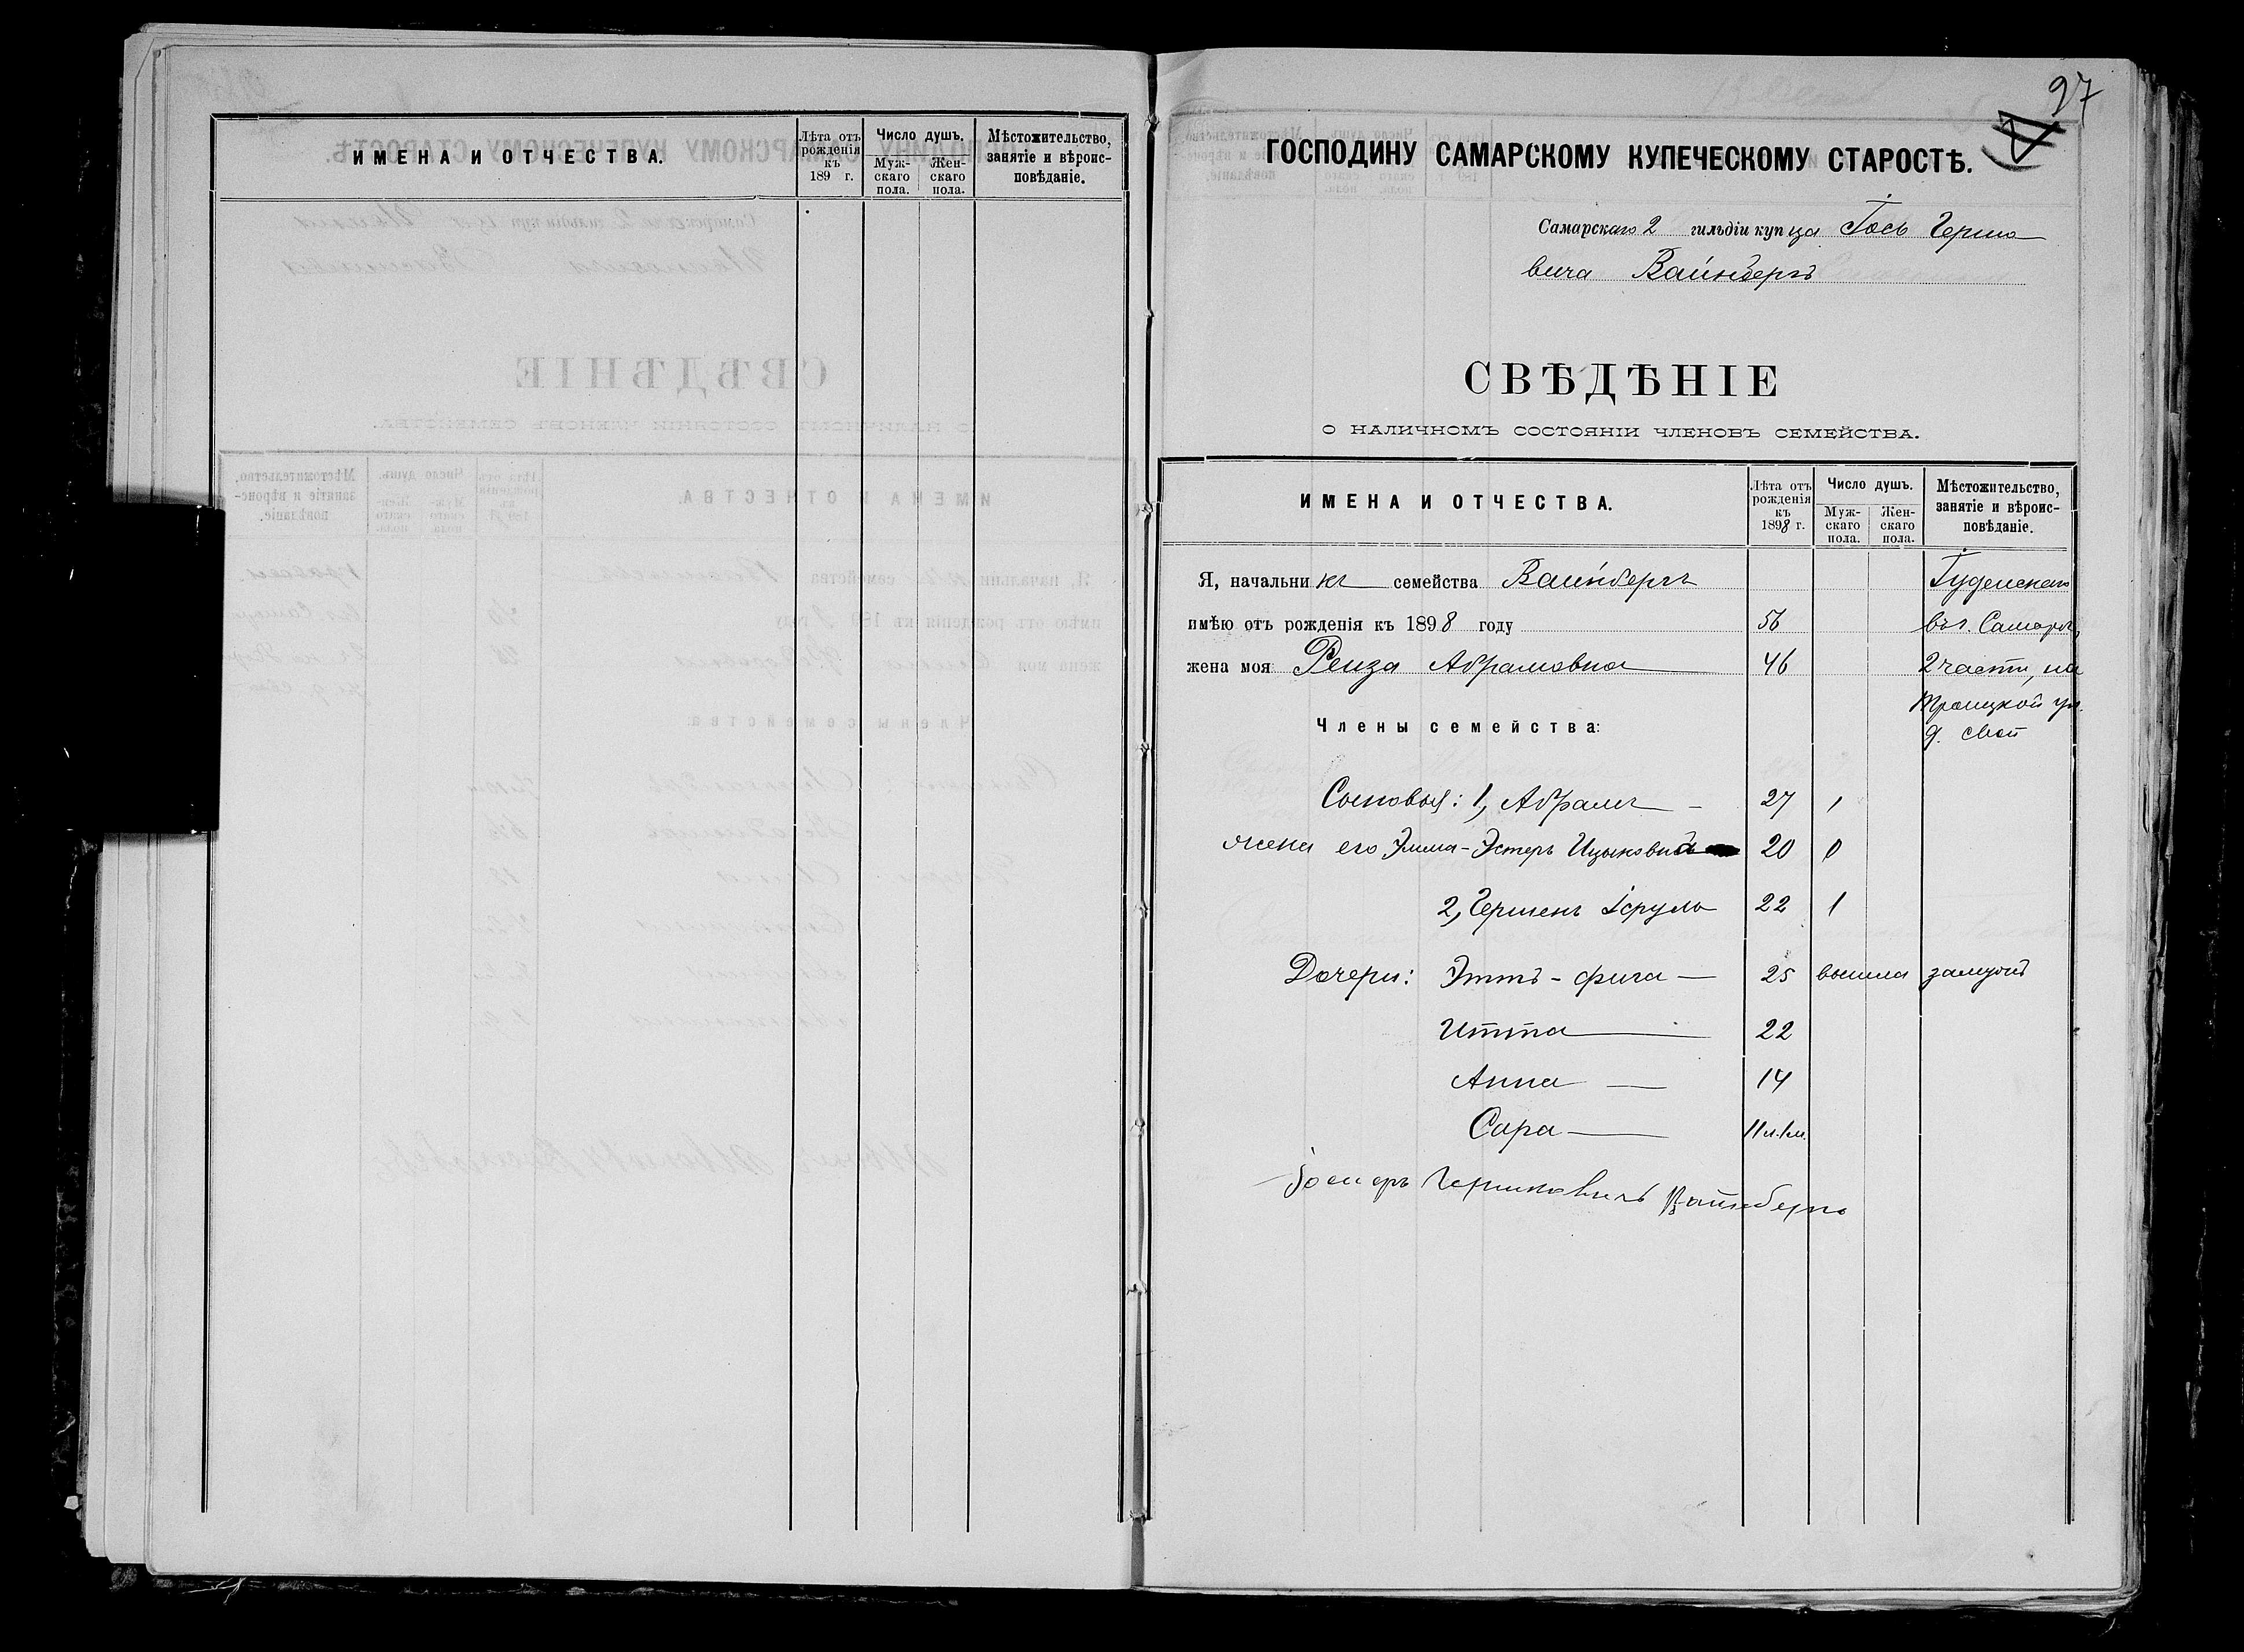 ИМЕНА И ОТЧЕСТВА.
Лѣта отъ рожденія къ 189 г.
Число душъ.
Муж-скаго пола.
Жен-скаго пола.
Мѣстожительство, занятіе и вѣроис-повѣданіе.
97
ГОСПОДИНУ САМАРСКОМУ КУПЕЧЕСКОМУ СТАРОСТѢ.
Самарскаго 2 гильдіи купца Іось Герше
вича Вайнбергъ
СВѢДѢНІЕ
О НАЛИЧНОМЪ СОСТОЯНІИ ЧЛЕНОВЪ СЕМЕЙСТВА.
ИМЕНА И ОТЧЕСТВА.
Лѣта отъ рожденія къ 1898 г.
Число душъ.
Муж-скаго пола.
Жен-скаго пола.
Мѣстожительство, занятіе и вѣроис-повѣданіе.
Я, начальникъ семейства Вайнбергъ Іудейскаго
имѣю отъ рожденія къ 1898 году 56 въ г. Самарѣ,
жена моя Рейза Абрамовна 46 2 части, на
Троицкой ул.
Члены семейства: д. свой
Сыновья: 1, Абрамъ 27 1
жена его Эмма-Эстеръ Ицыковна 20 0
2, Гершенъ Ісруль 22 1
Дочери: Эттъ-фига 25 вышла замужъ
Итта 22
Анна 14
Сара 11 л. 1 м.
Гершковичъ Вайнбергъ